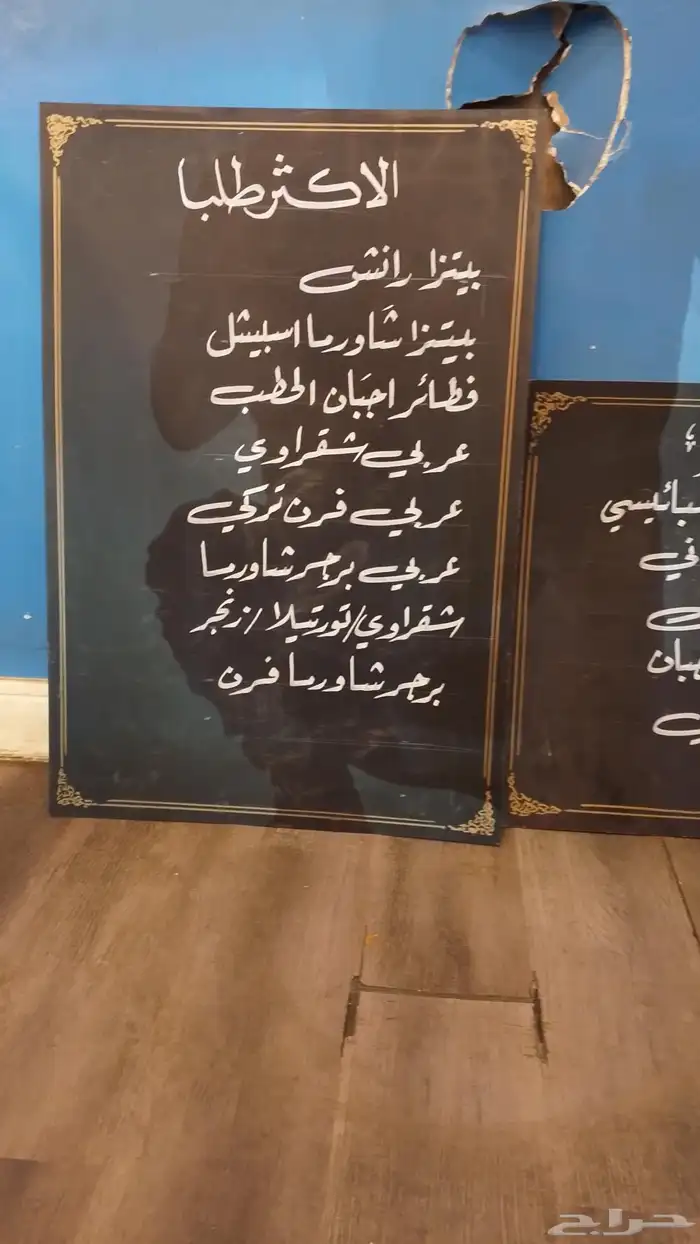 الاكثر طلبا
بيتزا رانش
بيتزا شاورما اسبيشل
فطائر اجبان الحطب
عربي شقراوي
عربي فرن تركي
عربي برجر شاورما
شقراوي/تورتيلا/زنجر
برجر شاورما فرن
في
حراج